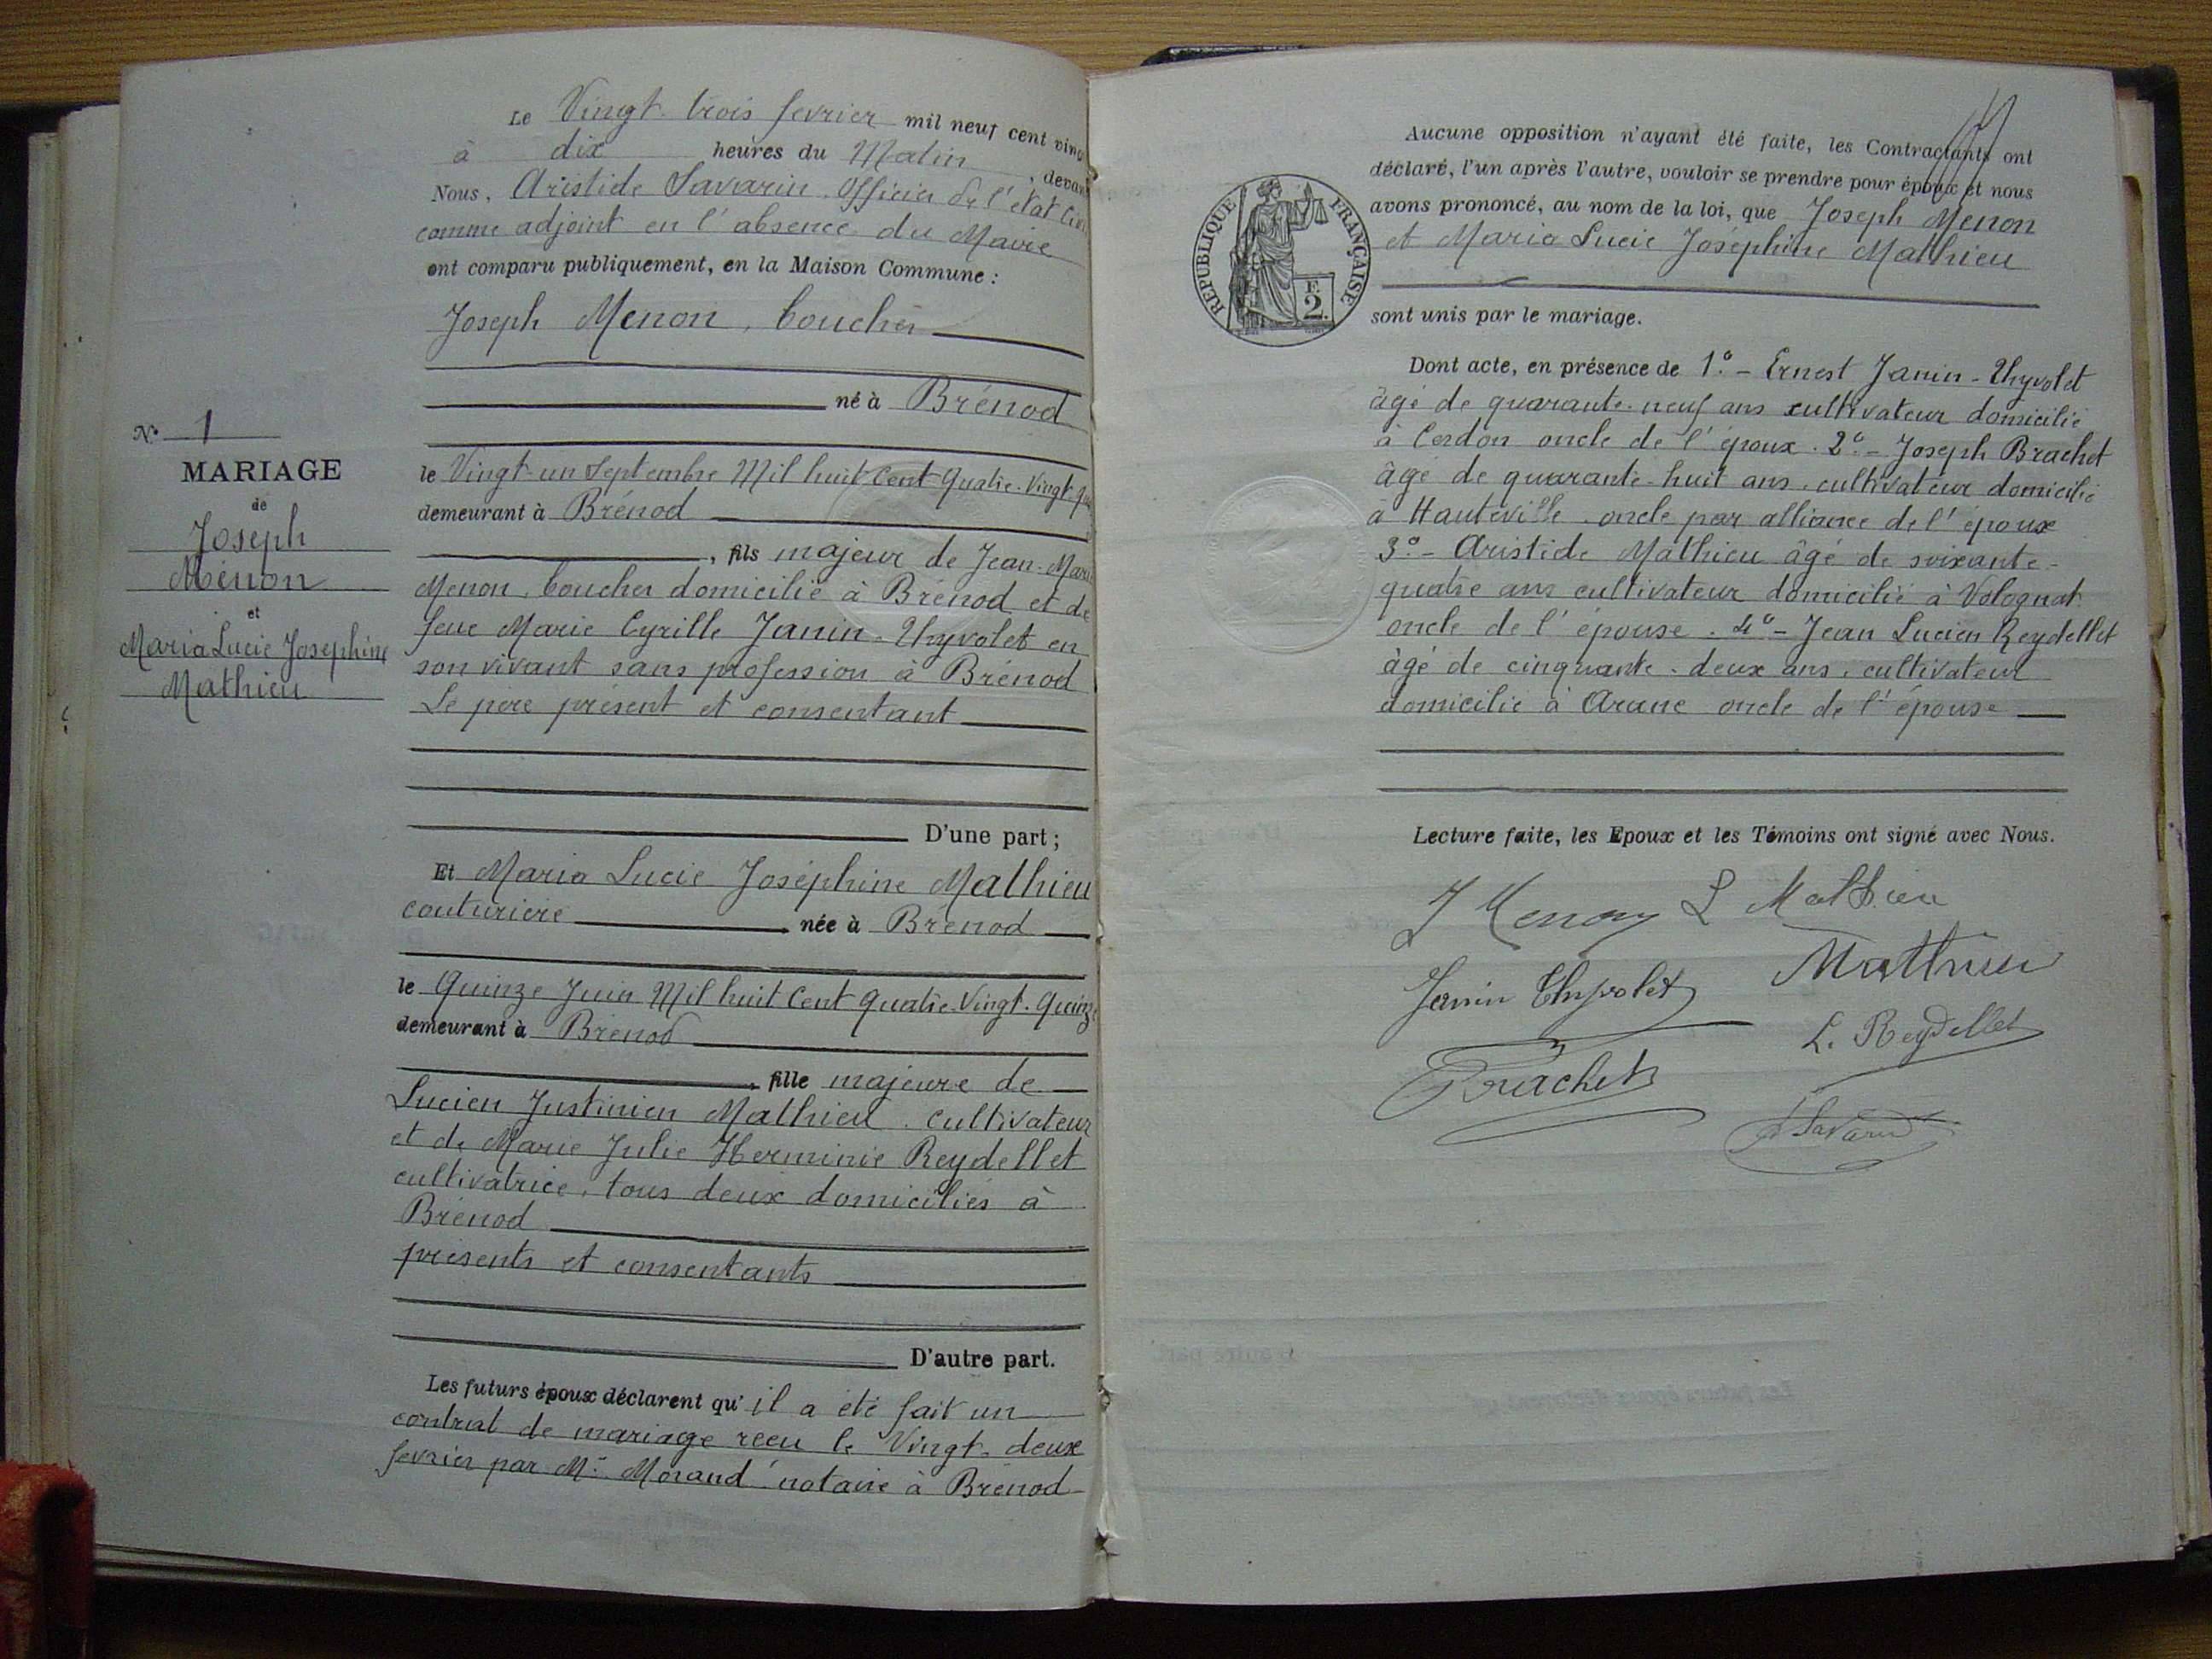 Le Vingt-trois fevrier mil neuf cent
à dix heures du Matin, devant
Nous, Aristide Savarin, Officier de l'état
comme adjoint en l'absence du Maire
ont comparu publiquement, en la Maison Commune :
Joseph Menon, boucher
né à Brénod
le Vingt-un Septembre Mil huit Cent Quatre-Vingt
demeurant à Brénod
, fils majeur de Jean-Marie
Menon, boucher domicilié à Brénod et de
feue Marie Cyrille Janin-Thyvolet en
son vivant sans profession à Brénod
Le père présent et consentant
D'une part ;
N° 1
MARIAGE
de
Joseph
Ménon
et
Maria Lucie Josephine
Mathieu
Et Maria Lucie Joséphine Mathieu
couturière née à Brénod
le Quinze Juin Mil huit Cent Quatre-Vingt-Quinze
demeurant à Brénod
, fille majeure de
Lucien Justinien Mathieu, cultivateur
et de Marie Julie Herminie Reydellet
cultivatrice, tous deux domiciliés à
Brénod
présents et consentants
D'autre part.
Les futurs époux déclarent qu'il a été fait un
contrat de mariage reçu le Vingt-deux
fevrier par Me Morand notaire à Brénod
Aucune opposition n'ayant été faite, les Contractants ont
déclaré, l'un après l'autre, vouloir se prendre pour époux et nous
avons prononcé, au nom de la loi, que Joseph Menon
et Maria Lucie Joséphine Mathieu
sont unis par le mariage.
RÉPUBLIQUE FRANÇAISE
F.
2.
Dont acte, en présence de 1° - Ernest Janin-Thyvolet
âgé de quarante-neuf ans cultivateur domicilié
à Cerdon oncle de l'époux. 2° - Joseph Brachet
âgé de quarante-huit ans, cultivateur domicilié
à Hauteville, oncle par alliance de l'époux
3° - Aristide Mathieu âgé de soixante-
quatre ans cultivateur domicilié à Volognat
oncle de l'épouse. 4° - Jean Lucien Reydellet
âgé de cinquante-deux ans, cultivateur
domicilié à Arane oncle de l'épouse
Lecture faite, les Epoux et les Témoins ont signé avec Nous.
J Menon L Mathieu
Janin Thyvolet Mathieu
Brachet L. Reydellet
Savarin